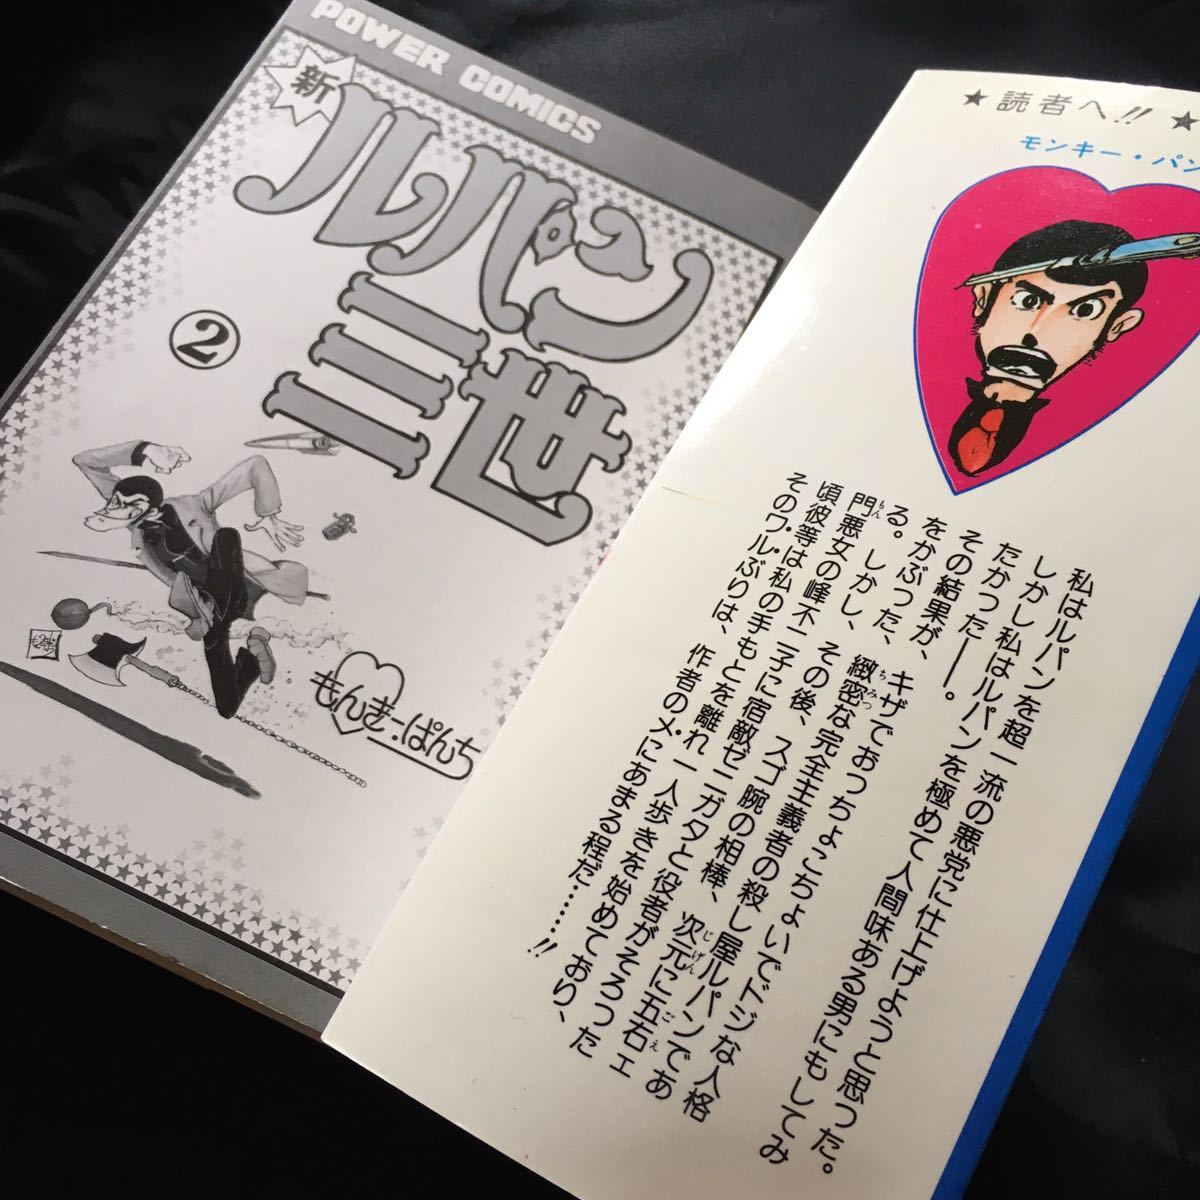 POWER COMICS
新
ルパン
三世
②
もんきー・ぱんち
★読者へ!!★
モンキー・パン
私はルパンを超一流の悪党に仕上げようと思った。
しかし私はルパンを極めて人間味ある男にもしてみ
たかった──。
その結果が、キザでおっちょこちょいでドジな人格
をかぶった、緻密な完全主義者の殺し屋ルパンであ
る。しかし、その後、スゴ腕の相棒、次元に五右ェ
門悪女の峰不二子に宿敵ゼニガタと役者がそろった
頃彼等は私の手もとを離れ一人歩きを始めており、
そのワルぶりは、作者のメにあまる程だ……!!